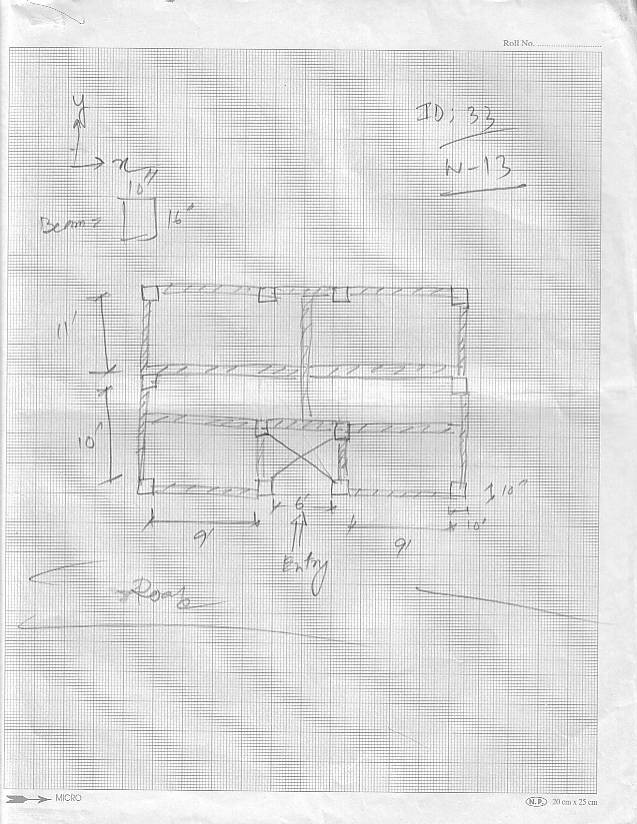 Roll No.
y
ID: 33
x
N-13
10"
Beam =
16"
11'
10'
10"
6'
10"
9'
9'
Entry
Road
MICRO
N.P. 20 cm x 25 cm